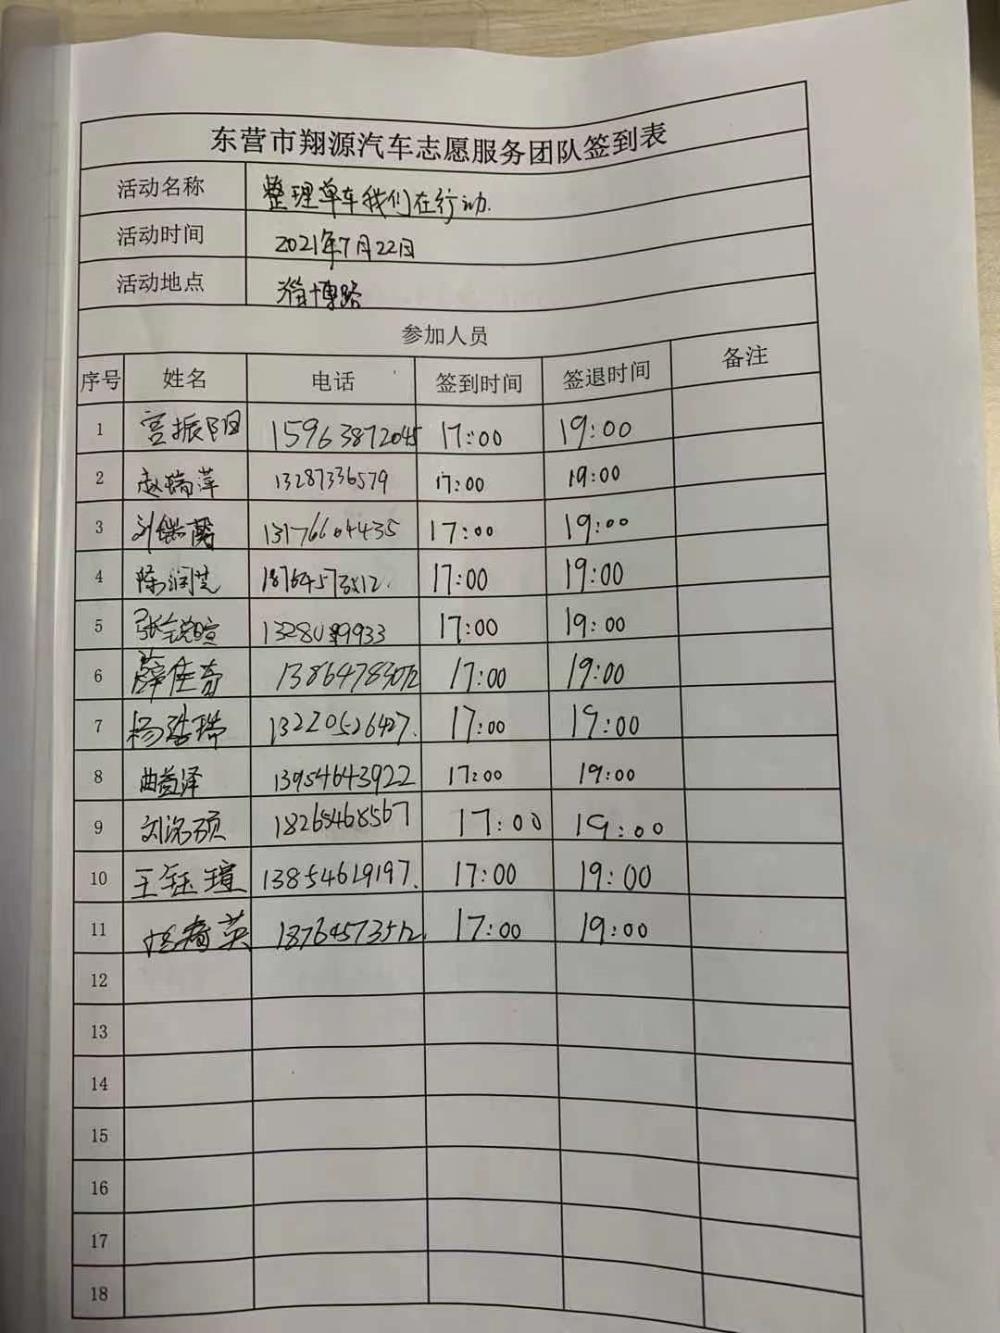 东营市翔源汽车志愿服务团队签到表
活动名称 整理单车我们在行动.
活动时间 2021年7月22日
活动地点 淄博路
参加人员
序号 姓名 电话 签到时间 签退时间 备注
1 宫振阳 15963872045 17:00 19:00
2 赵瑞萍 13287336579 17:00 19:00
3 刘 13176604435 17:00 19:00
4 陈润芝 18764573512. 17:00 19:00
5 张锐暄 17:00 19:00
6 薛佳奇 13864783072 17:00 19:00
7 杨 瑞 13220526427. 17:00 19:00
8 曲益泽 13954643922 17:00 19:00
9 刘洺硕 18265468567 17:00 19:00
10 王钰瑄 13854619197. 17:00 19:00
11 英 18764573512. 17:00 19:00
12
13
14
15
16
17
18